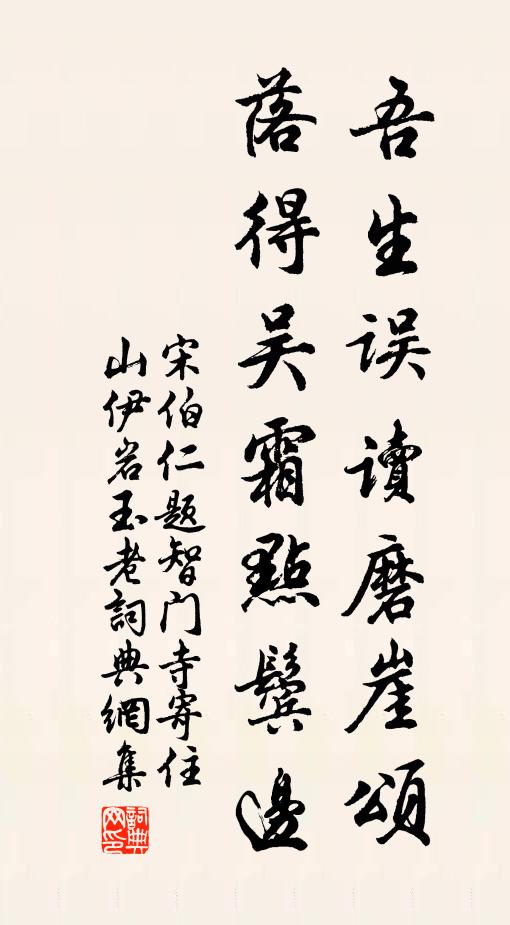 吾生误讀磨崖頌
落得吴霜點鬓邊
宋伯仁题智门寺寄住
山伊岩玉老詞典網集
詞典
网印